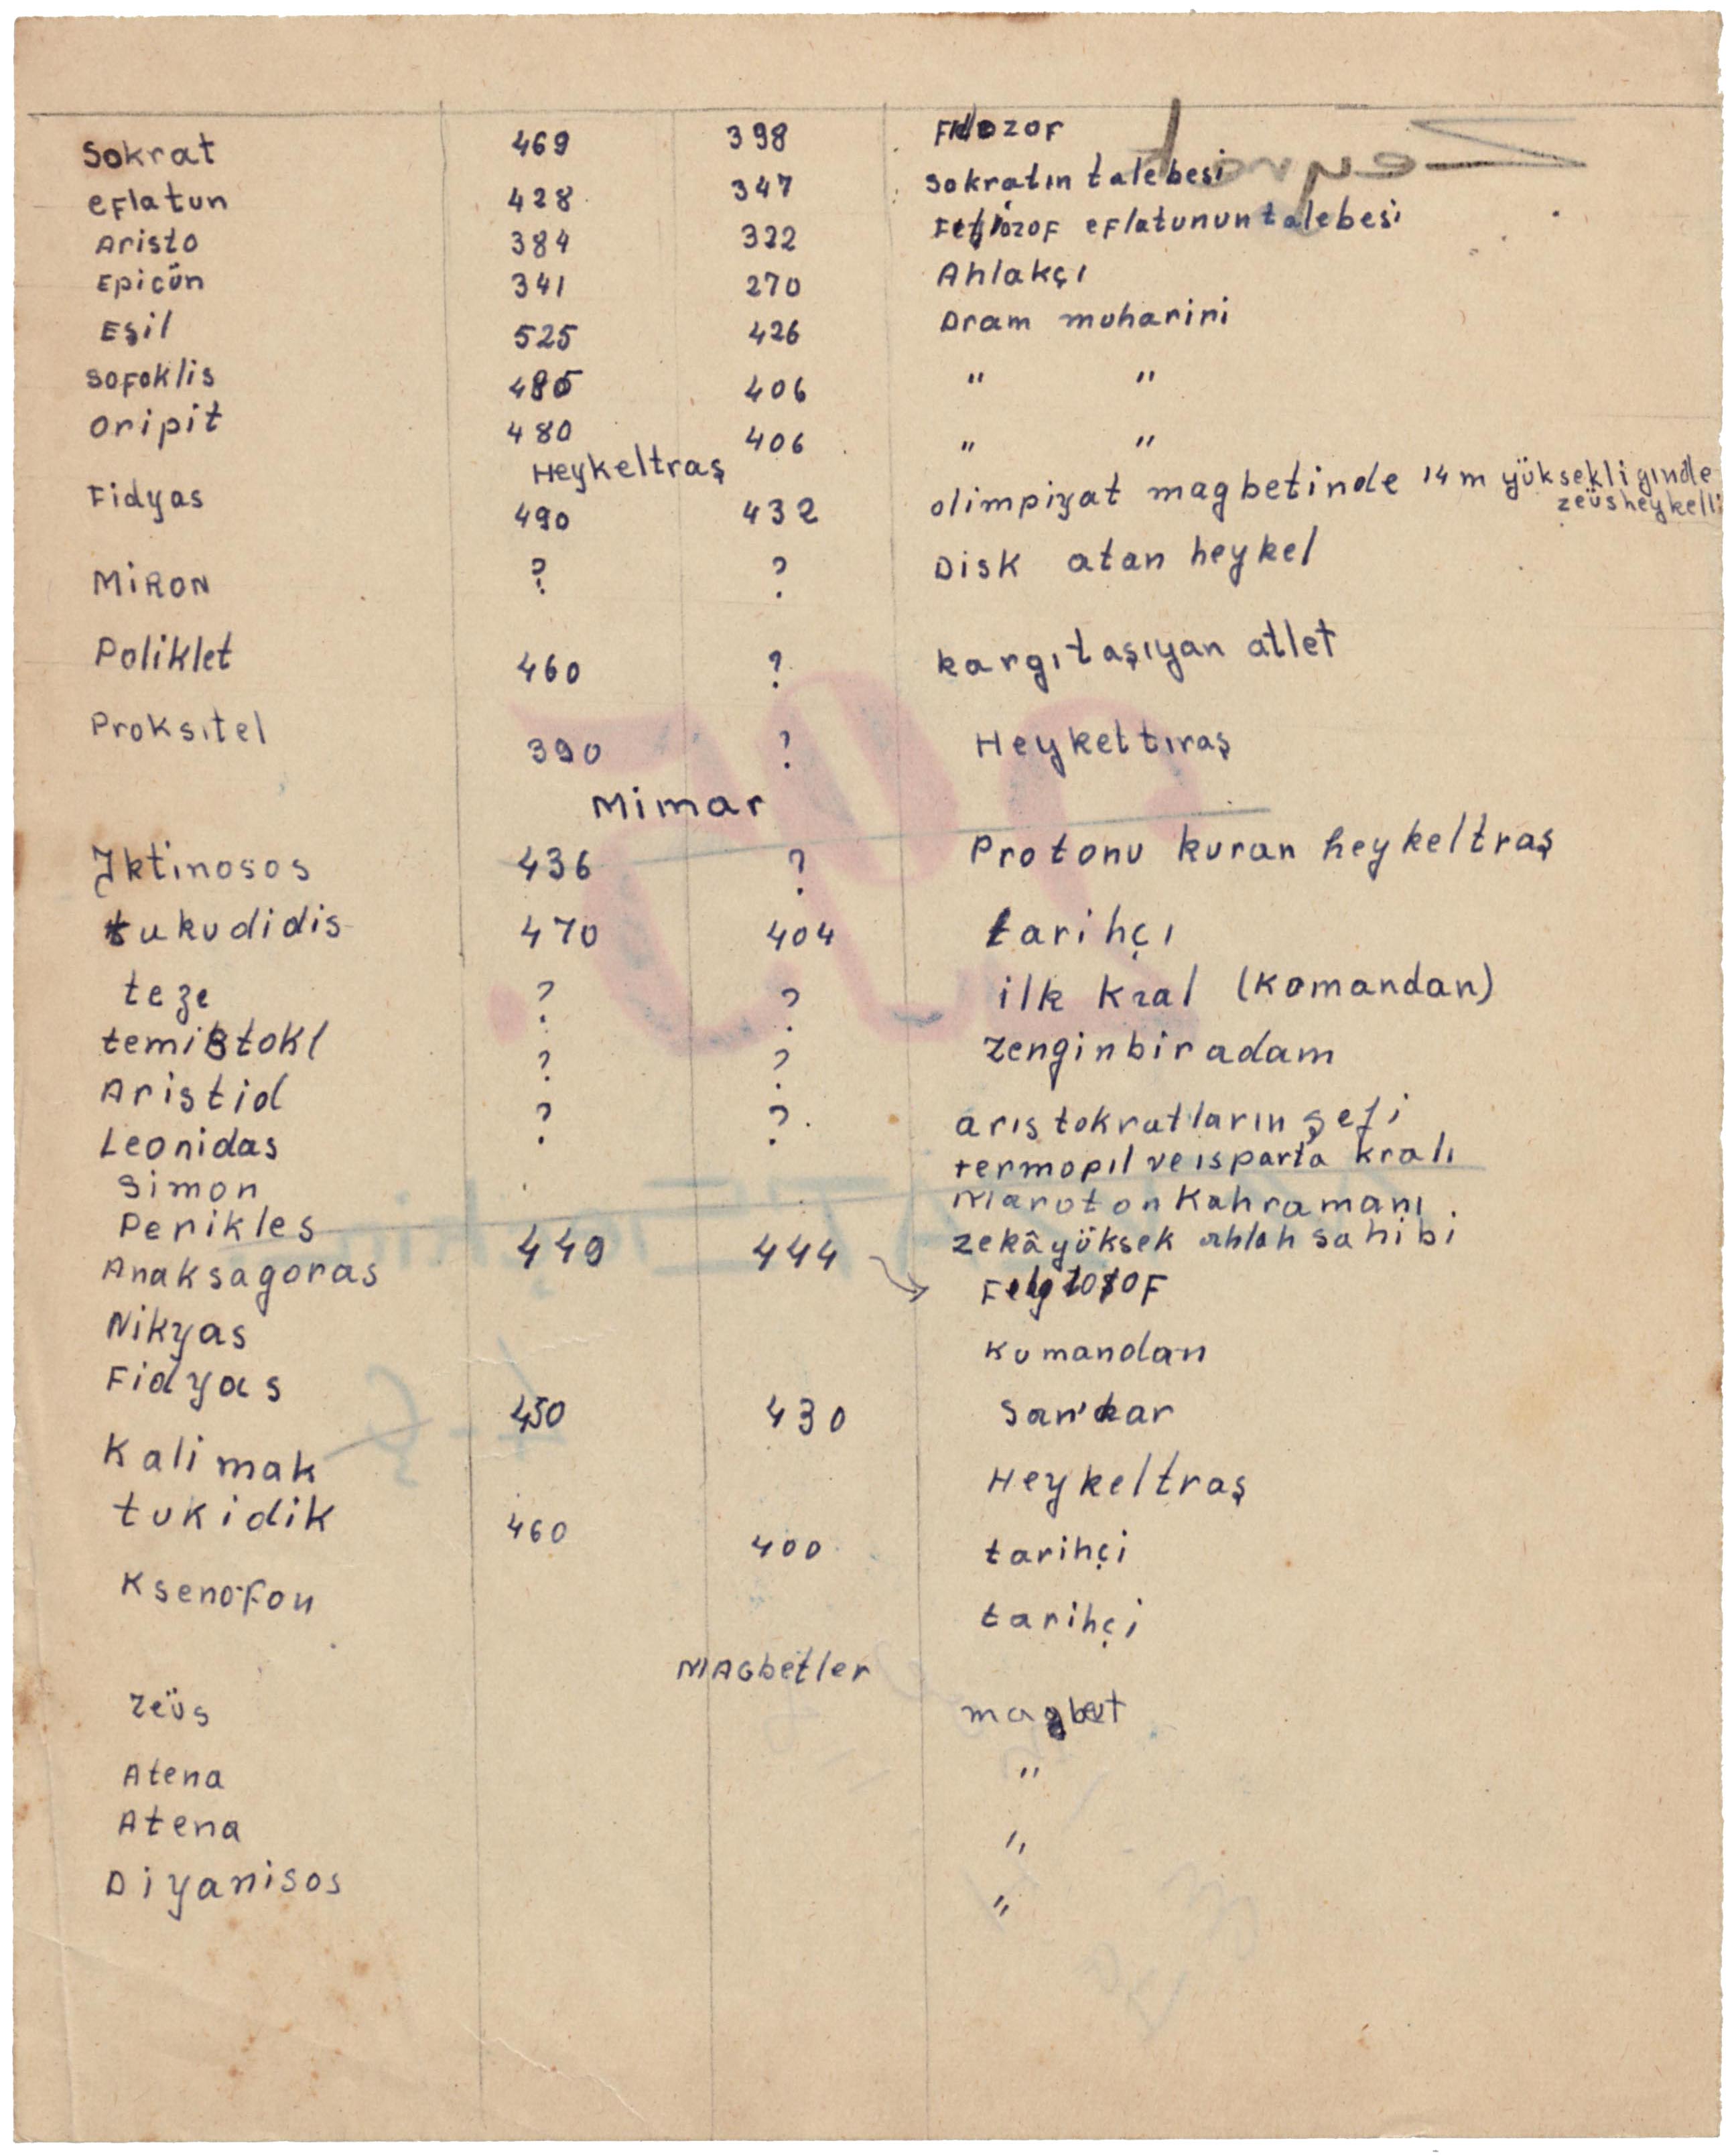 Sokrat 469 398 Filozof
eflatun 428 347 Sokratın talebesi
Aristo 384 322 Feylozof eflatunun talebesi
Epicün 341 270 Ahlakçı
Eşil 525 426 Dram muharini
Sofoklis 485 406 " "
Oripit 480 406 " "
Heykeltraş
Fidyas 490 432 olimpiyat magbetinde 14 m yüksekligınde
zeüsheykelli
MiRON ? ? Disk atan heykel
Poliklet 460 ? kargıtaşıyan atlet
Proksıtel 390 ? Heykettıraş
Mimar
Iktinosos 436 ? Protonu kuran heykeltraş
tukudidis 470 404 tarihçı
teze ? ? ilk kral (komandan)
temistokl ? ? zenginbir adam
Aristid ? ? arıstokratların şefi
Leonidas termopıl veısparta kralı
Simon Maroton Kahramanı.
Perikles 449 444 zekâyüksek ahlah sahibi
Anaksagoras Feylozof
Nikyas kumandan
Fidyas 450 430 San'kar
Kalimak Heykeltraş
tukidik 460 400 tarihçi
Ksenofon tarihçi
MAGbetler
zeüs magbet
Atena "
Atena "
Diyanisos "